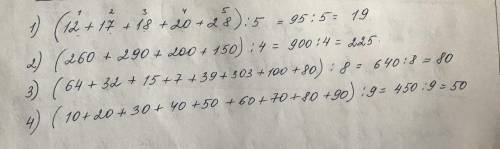 1) (12 + 17 + 18 + 20 + 28) : 5 = 95 : 5 = 19
1 2 3 4 5
2) (260 + 290 + 200 + 150) : 4 = 900 : 4 = 225.
3) (64 + 32 + 15 + 7 + 39 + 303 + 100 + 80) : 8 = 640 : 8 = 80
4) (10 + 20 + 30 + 40 + 50 + 60 + 70 + 80 + 90) : 9 = 450 : 9 = 50